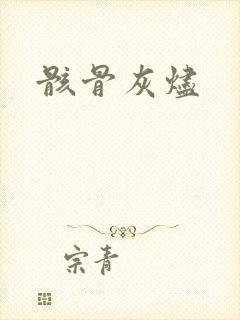 骸骨灰燼
宗青